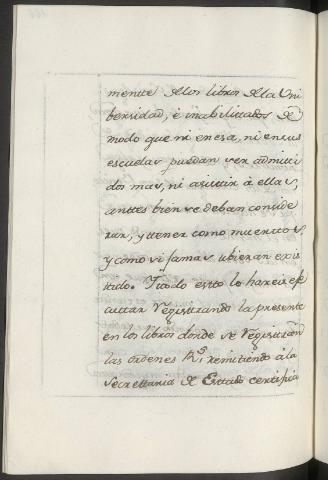 mentte de los libros de la Uni
bersidad, è inabilittados de
modo que ni en esa, ni en sus
escuelas puedan ser admitti
dos mas, ni asisttir à ellas,
anttes bien se deban conside
rar, y ttener como muerttos,
y como si jamas ubieran exis
ttido. Ttodo estto lo hareis eje
cuttar Registtrando la presente
en los libros donde se Registtran
las ordenes Rs. remitiendo à la
Secrettaria de Esttado certifica